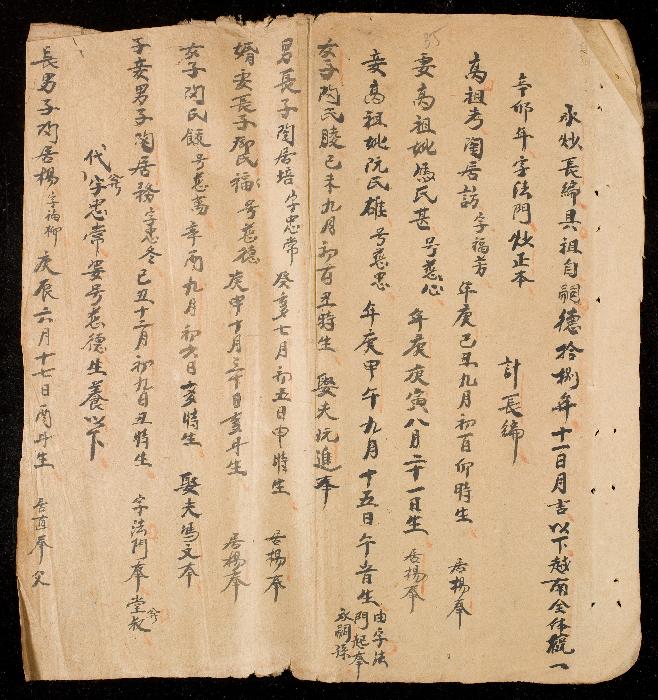 永抄長締具祖自嗣德拾捌年十一日月吉以下越南全体統一
辛卯年字法門炒正本
計長締
高祖考陶居訪字福芳 年庚己丑九月初百卯時生 居楊奉
妻高祖妣馮氏甚号慈心 年庚庚寅八月二十一日生 居楊奉
妾高祖妣阮氏雄号慈忠 年庚甲午九月十五日午時生 由字法門起奉承嗣孫
女子陶氏 己未九月初百丑時生 娶夫阮進奉
男長子陶居培字忠常 癸亥七月初五日申時生 居楊奉
婿妻長子 氏福号慈德 庚申十月三十日亥時生 居楊奉
女子陶民 号慈高辛酉九月初六日亥時生 娶夫馮文奉
子妾男子陶居務字忠 己丑十二月初九日丑時生 字法門奉堂叔
代字忠常妾号慈德生養以下
長男子陶居楊字福柳庚辰六月十七日酉時生 居直奉父